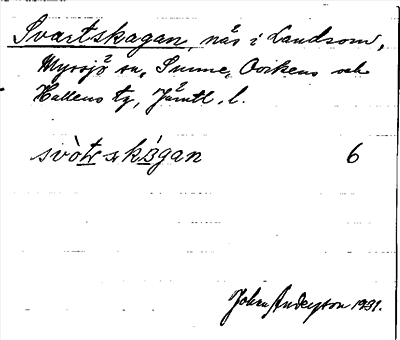 Svartskagan, näs i Landsom,
Myssjö sn, Sunne, Ovikens och
Hallens tg, Jämtl. l.
svòtskògan 6
Johan Anderson 1931.